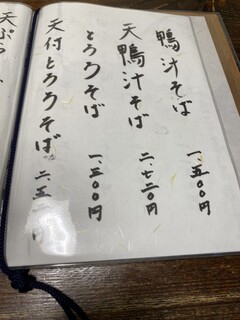 鴨汁そば 一、五〇〇円
天鴨汁そば 二、七二〇円
とろろそば 一、三〇〇円
天付とろろそば 二、五
天ぷら